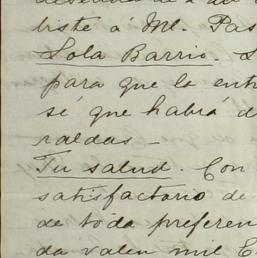 biste á Ml. Pas
Lola Barrio.
para que la entr
sé que habrá d
raldas —
Tu salud. Con
satisfactorio de
de toda preferen
da valen mil E